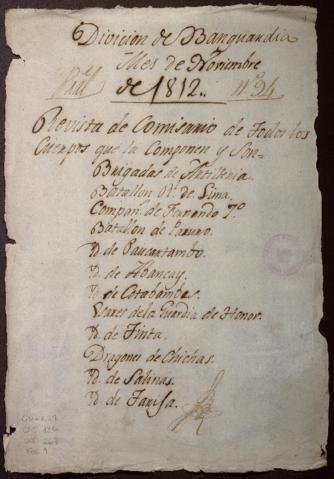 Divicion de Banguardia
Mes de Nobiembre
de 1812.. N.º 94
Revista de Comisario de Todos los
Cuerpos que la Componen y Son=
Briguadas de Artilleria.
Batallon Rl. de Lima.
Compañ. de Fernando 7.º
Batallon de Paruro.
Yd. de Paucartambo.
Yd. de Abancay.
Yd. de Cotabambas.
de la Guardia de Honor.
Yd. de Tinta.
Dragones de Chichas.
Yd. de Salinas.
Yd. de Tarija.